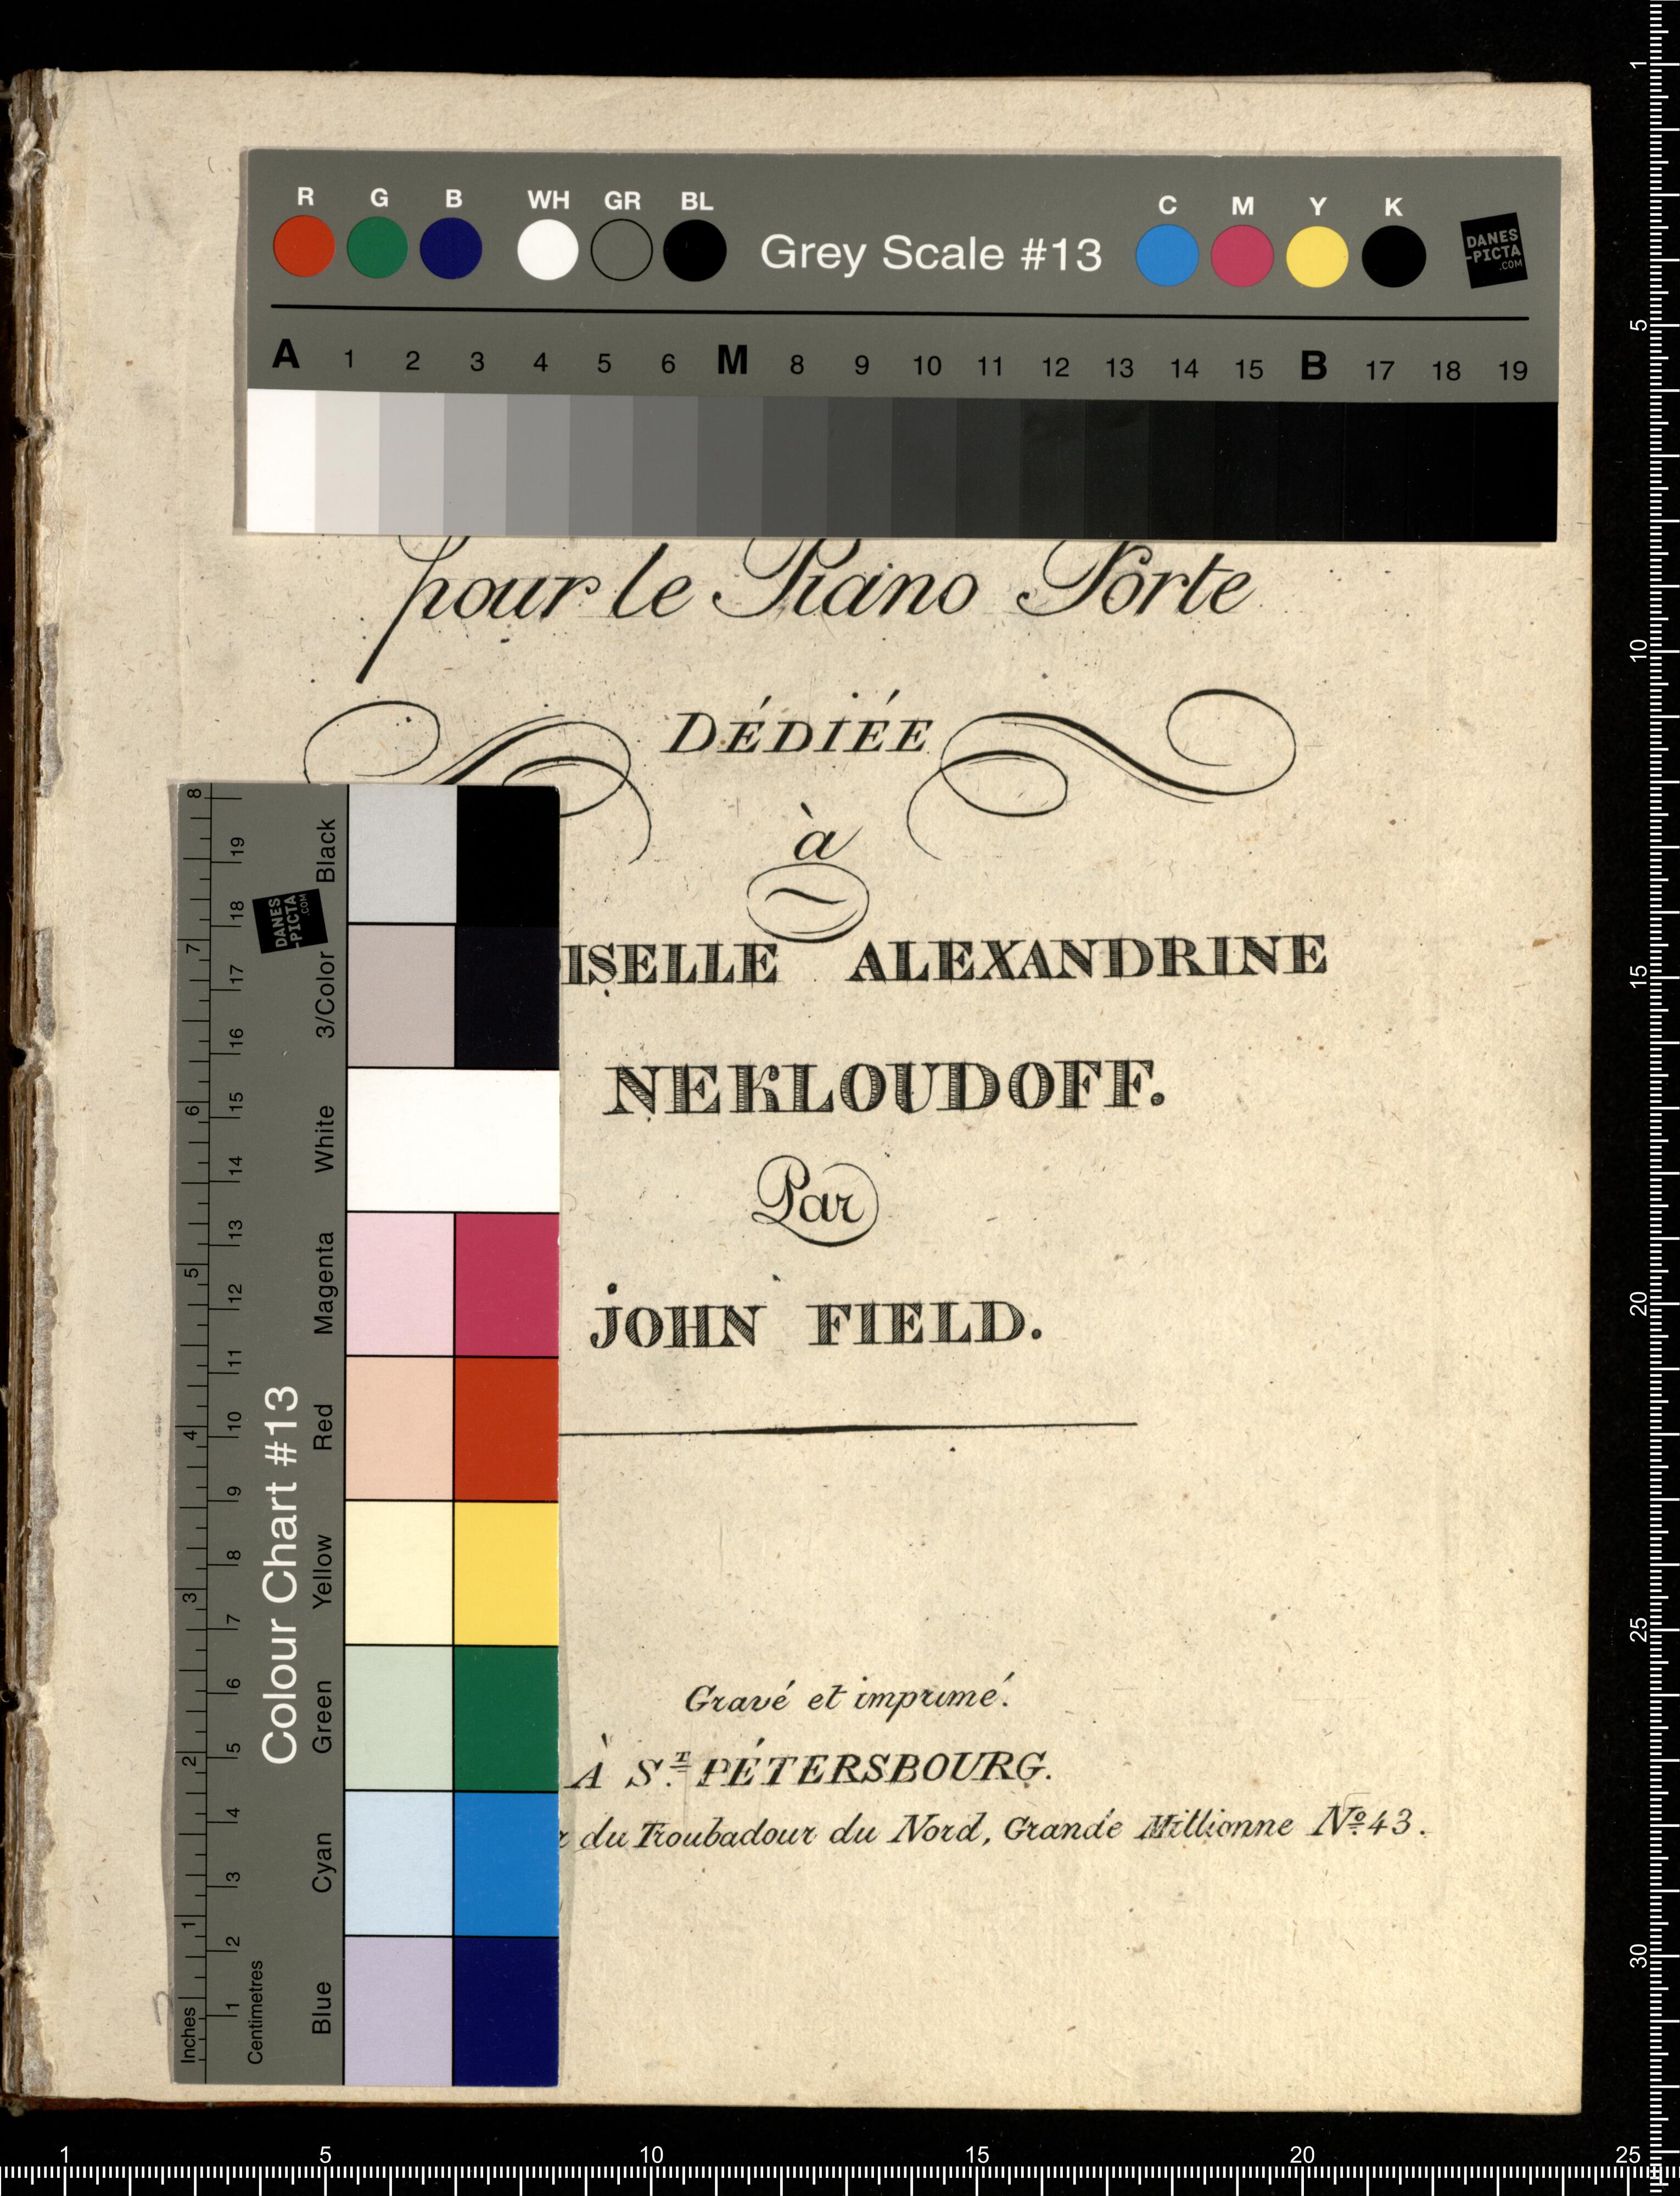 R G B WH GR BL Grey Scale #13 C M Y K
DANES
-PICTA
.COM
A 1 2 3 4 5 6 M 8 9 10 11 12 13 14 15 B 17 18 19
pour le Piano Forte
DÉDIÉE
à
ISELLE ALEXANDRINE
NEKLOUDOFF.
Par
JOHN FIELD.
Gravé et imprimé.
À S.T PÉTERSBOURG.
r du Troubadour du Nord, Grande Millionne No. 43.
Colour Chart #13
Blue Cyan Green Yellow Red Magenta White 3/Color Black
DANES
-PICTA
.COM
Inches 1 2 3 4 5 6 7 8
Centimetres 1 2 3 4 5 6 7 8 9 10 11 12 13 14 15 16 17 18 19
1 5 10 15 20 25 30
1 5 10 15 20 25